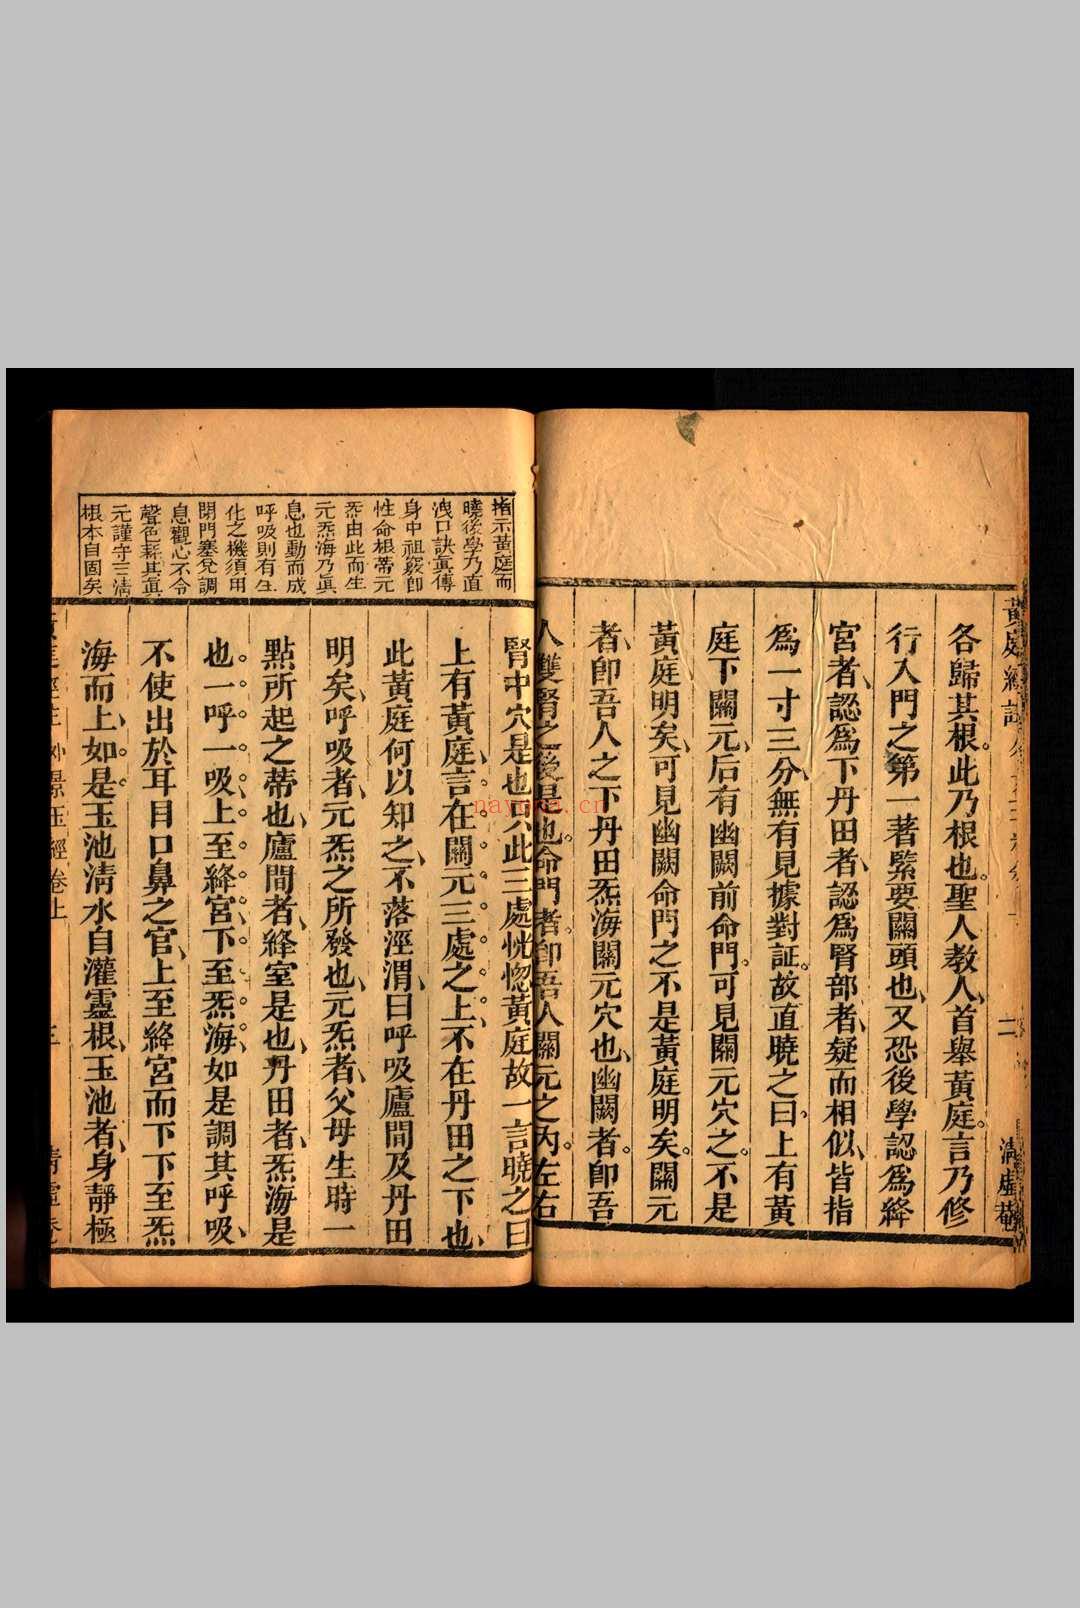 各歸其根此乃根也聖人教人首舉黃庭言乃修
行入門之第一著緊要關頭也又恐後學認爲絳
宮者認爲下丹田者認爲腎部者疑而相似皆指
爲一寸三分無有見據對証故直曉之曰上有黃
庭下關元后有幽闕前命門可見關元穴之不是
黃庭明矣可見幽闕命門之不是黃庭明矣關元
者卽吾人之下丹田炁海關元穴也幽闕者卽吾
人雙腎之後是也命門者卽吾人關元之內左右
指示黃庭而
曉後學乃直
洩口訣眞傳
身中祖竅卽
性命根蒂元
炁由此而生
元炁海乃眞
息也動而成
呼吸則有生
化之機須用
閉門塞兌調
息觀心不令
聲色耗其眞
元謹守三淸
根本自固矣
腎中穴是也只此三處恍惚黃庭故一言曉之曰
上有黃庭言在關元三處之上不在丹田之下也
此黃庭何以知之不落涇渭曰呼吸廬間及丹田
明矣呼吸者元炁之所發也元炁者父母生時一
點所起之蒂也廬間者絳室是也丹田者炁海是
也一呼一吸上至絳宮下至炁海如是調其呼吸
不使出於耳目口鼻之官上至絳宮而下下至炁
海而上如是玉池淸水自灌靈根玉池者身靜極
黃庭經註
二
淸虛菴
外景玉經卷上
三
nayona.cn